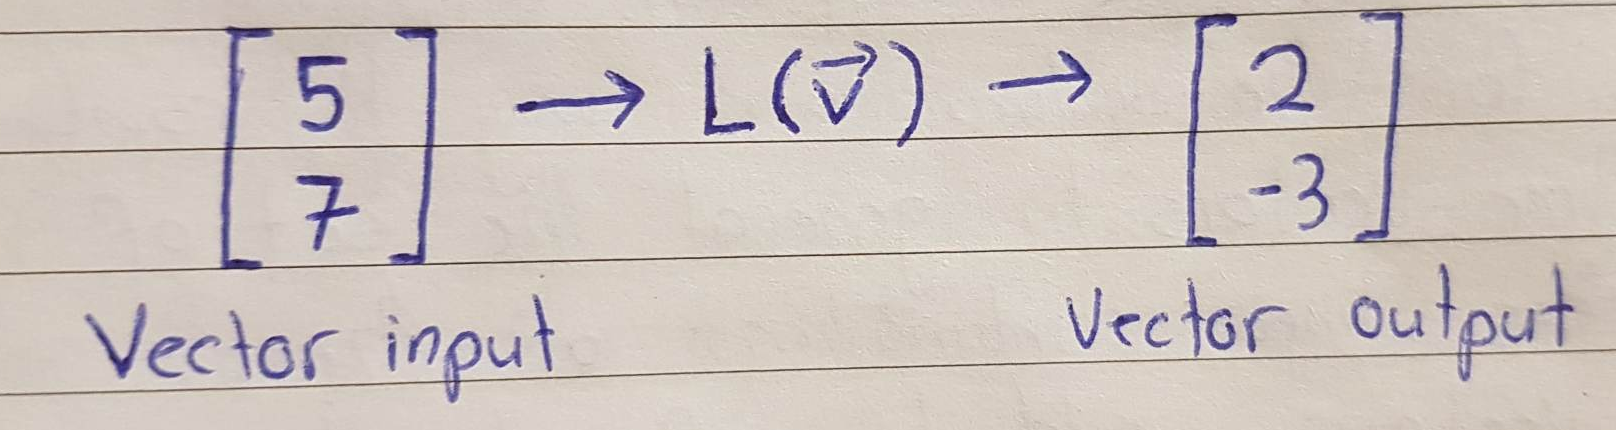 [5 7] → L(v⃗) → [2 -3]
Vector input Vector output